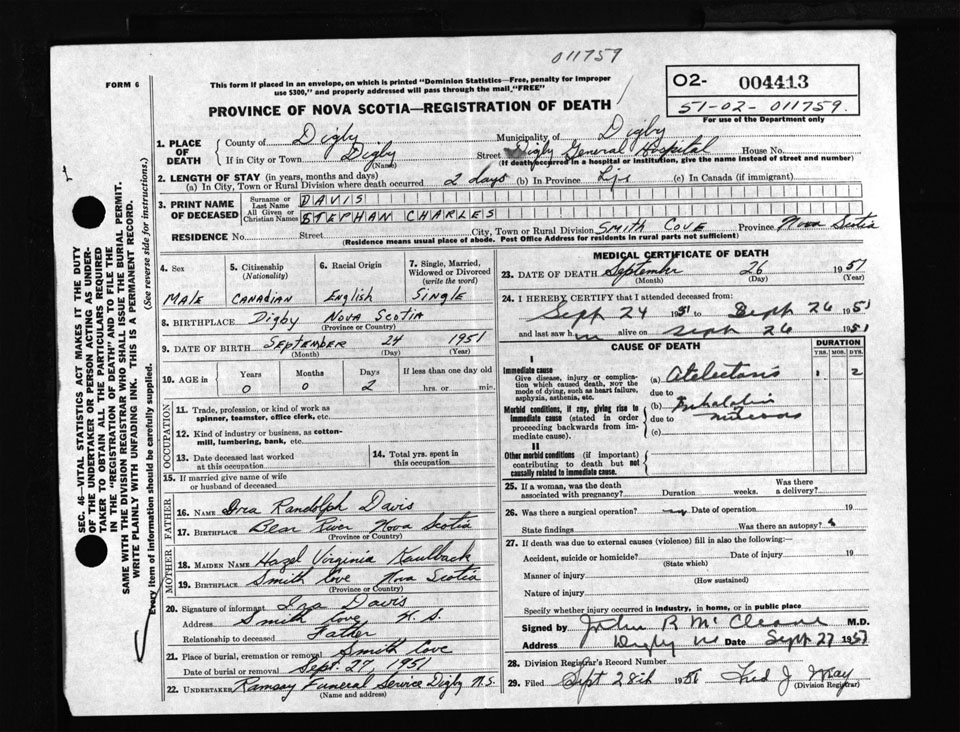 011759
FORM 6
This form if placed in an envelope, on which is printed "Dominion Statistics—Free, penalty for improper
use $300," and properly addressed will pass through the mail "FREE"
PROVINCE OF NOVA SCOTIA—REGISTRATION OF DEATH
O2- 004413
51-02-011759.
For use of the Department only
SEC. 46—VITAL STATISTICS ACT MAKES IT THE DUTY
OF THE UNDERTAKER OR PERSON ACTING AS UNDER-
TAKER TO OBTAIN ALL THE PARTICULARS REQUIRED
IN THE "REGISTRATION OF DEATH" AND TO FILE THE
SAME WITH THE DIVISION REGISTRAR WHO SHALL ISSUE THE BURIAL PERMIT.
WRITE PLAINLY WITH UNFADING INK. THIS IS A PERMANENT RECORD.
(See reverse side for instructions.)
Every item of information should be carefully supplied.
1. PLACE OF DEATH County of Digby Municipality of Digby
If in City or Town Digby (Name) Street Digby General Hospital House No.
(If death occurred in a hospital or institution, give the name instead of street and number)
2. LENGTH OF STAY (in years, months and days)
(a) In City, Town or Rural Division where death occurred 2 days (b) In Province Life (c) In Canada (if immigrant)
3. PRINT NAME OF DECEASED Surname or Last Name DAVIS
All Given or Christian Names STEPHAN CHARLES
RESIDENCE No. Street City, Town or Rural Division SMITH COVE Province Nova Scotia
(Residence means usual place of abode. Post Office Address for residents in rural parts not sufficient)
4. Sex MALE
5. Citizenship (Nationality) CANADIAN
6. Racial Origin English
7. Single, Married, Widowed or Divorced (write the word) SINGLE
8. BIRTHPLACE Digby NOVA SCOTIA
(Province or Country)
9. DATE OF BIRTH SEPTEMBER 24 1951
(Month) (Day) (Year)
10. AGE in Years Months Days If less than one day old
0 0 2 hrs. or min.
OCCUPATION
11. Trade, profession, or kind of work as spinner, teamster, office clerk, etc.
12. Kind of industry or business, as cotton-mill, lumbering, bank, etc.
13. Date deceased last worked at this occupation
14. Total yrs. spent in this occupation
15. If married give name of wife or husband of deceased
FATHER
16. NAME Ira Randolph Davis
17. BIRTHPLACE Bear River Nova Scotia
(Province or Country)
MOTHER
18. MAIDEN NAME Hazel Virginia Kaulback
19. BIRTHPLACE Smith Cove Nova Scotia
(Province or Country)
20. Signature of informant Ira Davis
Address Smith Cove N.S.
Relationship to deceased Father
21. Place of burial, cremation or removal Smith Cove
Date of burial or removal Sept. 27, 1951
22. UNDERTAKER Ramsay Funeral Service Digby N.S.
(Name and address)
MEDICAL CERTIFICATE OF DEATH
23. DATE OF DEATH September 26 1951
(Month) (Day) (Year)
24. I HEREBY CERTIFY that I attended deceased from:
Sept 24 1951 to Sept 26 1951
and last saw him alive on Sept 26 1951
CAUSE OF DEATH
DURATION
YRS. MOS. DYS.
I
Immediate cause
Give disease, injury or complication which caused death, NOT the mode of dying, such as heart failure, asphyxia, asthenia, etc.
(a) Atelectasis 2
due to
Morbid conditions, if any, giving rise to immediate cause (stated in order proceeding backwards from immediate cause).
(b)
due to
(c)
II
Other morbid conditions (if important) contributing to death but not causally related to immediate cause.
25. If a woman, was the death associated with pregnancy? Duration weeks. Was there a delivery?
26. Was there a surgical operation? no Date of operation 19
State findings Was there an autopsy?
27. If death was due to external causes (violence) fill in also the following:—
Accident, suicide or homicide? Date of injury 19
(State which)
Manner of injury
(How sustained)
Nature of injury
Specify whether injury occurred in industry, in home, or in public place
Signed by John R McCleave M.D.
Address Digby NS Date Sept 27 1951
28. Division Registrar's Record Number
29. Filed Sept 28th 1951 Fred J. May
(Division Registrar)